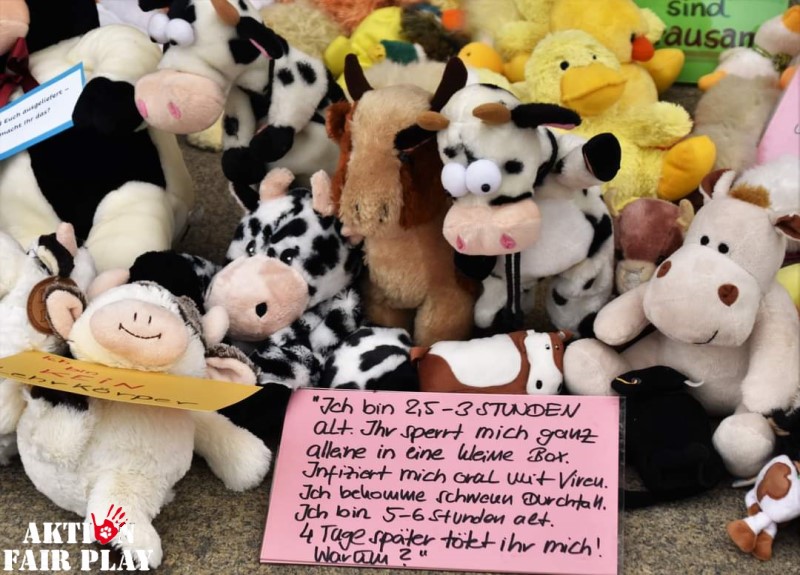 sind
grausam
Euch ausgeliefert -
macht Ihr das?
Ich bin
KEIN
Lehrkörper
"Ich bin 2,5-3 STUNDEN
alt. Ihr sperrt mich ganz
alleine in eine kleine Box.
Infiziert mich oral mit Viren.
Ich bekomme schweren Durchfall.
Ich bin 5-6 Stunden alt.
4 Tage später tötet ihr mich!
Warum?"
AKTION
FAIR PLAY